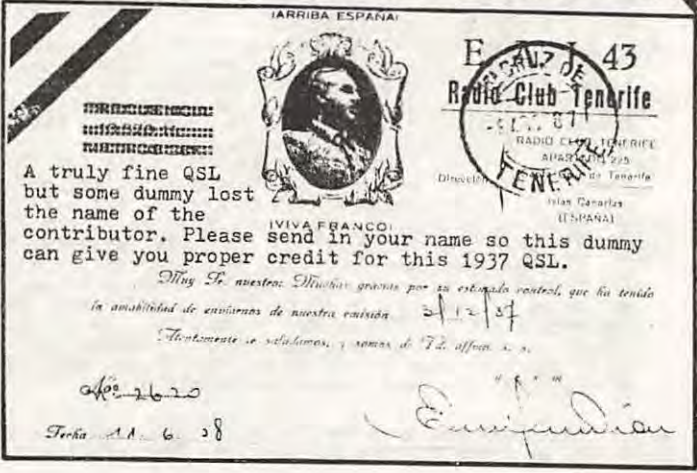 ¡ARRIBA ESPAÑA!
E A J 43
Radio Club Tenerife
RADIO CLUB TENERIFE
APARTADO 225
Dirección de Tenerife
Islas Canarias
(ESPAÑA)
CRUZ DE
TENERIFE
A truly fine QSL
but some dummy lost
the name of the
¡VIVA FRANCO!
contributor. Please send in your name so this dummy
can give you proper credit for this 1937 QSL.
Muy Sr. nuestro: Muchas gracias por su estimado control, que ha tenido
la amabilidad de enviarnos de nuestra emisión 3/12/37
Atentamente le saludamos, y somos de Vd. affmos. s. s.
Nº 2620
Fecha 11 6 38